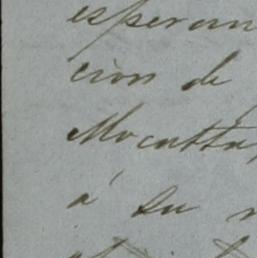 esperan
ción de
Mocatta,
á su